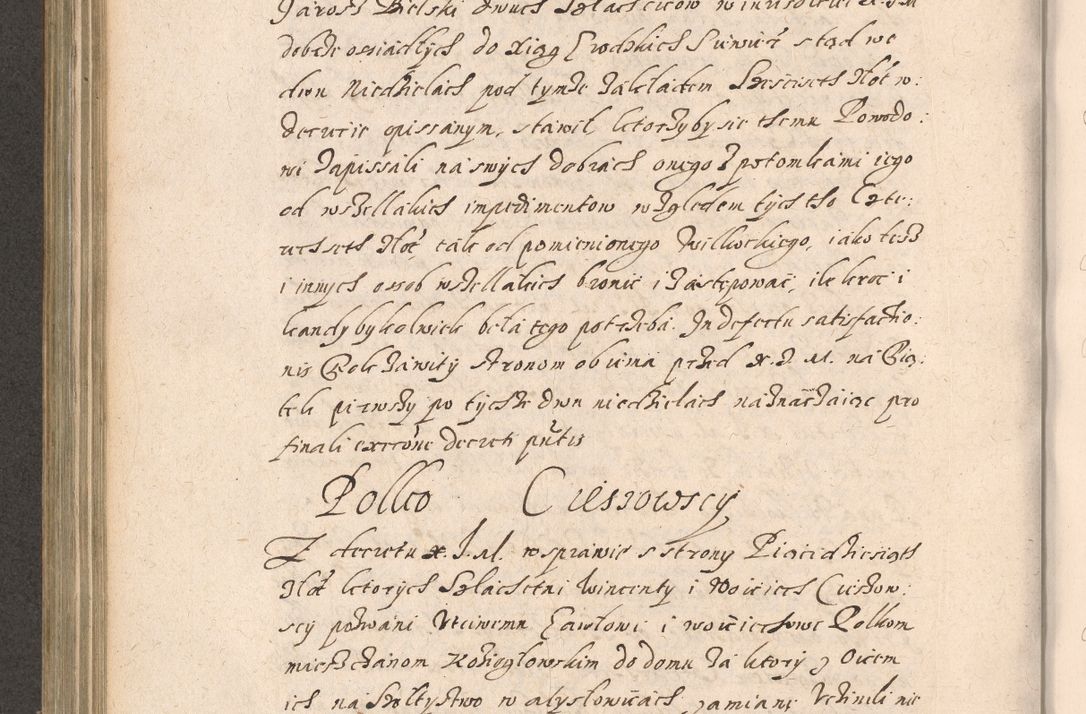 Jarosz Bielski dwuch Szlachcicow w
dobrze ossiadłych do xiąg Grodzkich Siewier: stąd we
dwu Niedzielach pod tymże zakładem Sześciset złot w:
decrecie opissanym, stawił ktorzyby sie themu Powodo:
wi zapissali na swych dobrach onego z potomkami iego
od wszellakich impedimentow względem tych tho Czte:
rechset złot, tak od pomienionego Wilkockiego, iako tesz
i innych ossob wszellakich bronić i zastępować, ile kroć i
kandy bykolwiek beła tego potrzeba. In defectu satisfactio:
nis Rok zawity stronom obiema przed X. I. M. na Pią:
tek pierwszy po tychże dwu niedzielach naznaczaiąc pro
finali exeone decreti pntis
Polko Cieszowscy
Z decretu X. I. M. w sprawie s strony Piącidziesiąt
złot ktorych Szlachetni Wincenty i Woiciech Cieszow:
scy pozwani Ucciwemu Gawłowi i Woiciechowi Polkom
miesczanom Koziegłowskim do domu za ktory z Oicem
ich na Szołtystwo w Mysłowicach zamianę Uchinili nie